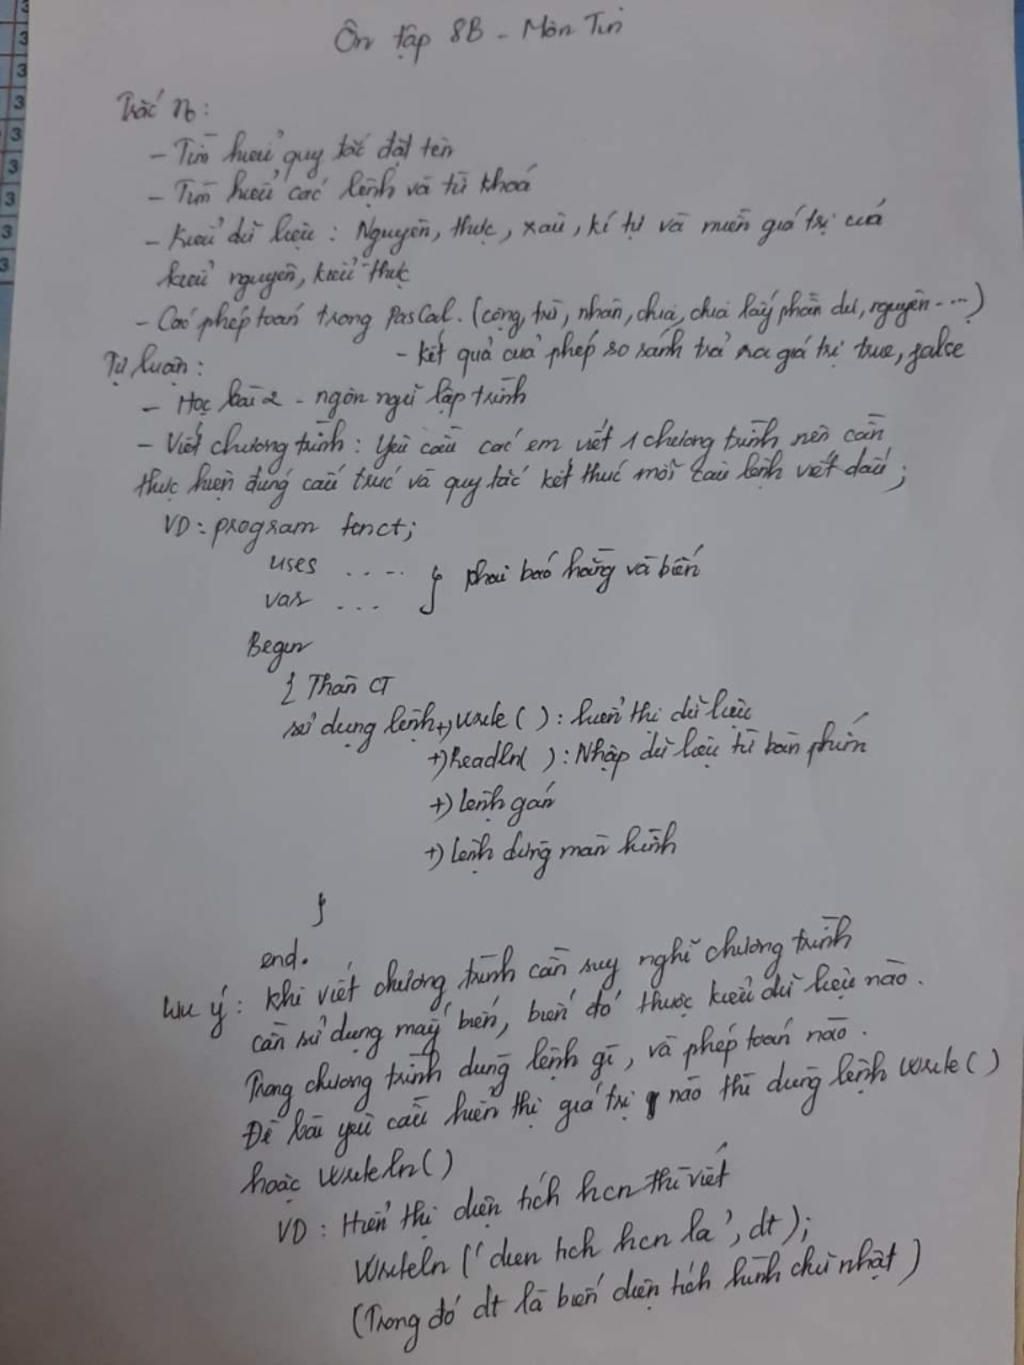 Ôn tập 8B - Môn Tin
Trắc No:
- Tìm hiểu quy tắc đặt tên
- Tìm hiểu các lệnh và từ khoá
- Kiểu dữ liệu: Nguyên, thực, xâu, kí tự và miền giá trị của
kiểu nguyên, kiểu thực
- Các phép toán trong Pascal. (cộng, trừ, nhân, chia, chia lấy phần dư, nguyên ....)
- kết quả của phép so sánh trả ra giá trị true, false
Tự luận:
- Học bài 2 - ngôn ngữ lập trình
- Viết chương trình: Yêu cầu các em viết 1 chương trình nên cần
thực hiện đúng cấu trúc và quy tắc kết thúc mỗi câu lệnh viết dấu ;
VD: program tenct;
uses ..... } khai báo hằng và biến
var ....
Begin
{ Thân CT
sử dụng lệnh +) write ( ): hiển thị dữ liệu
+) Readln( ): Nhập dữ liệu từ bàn phím
+) lệnh gán
+) lệnh dừng màn hình
}
end.
Lưu ý: khi viết chương trình cần suy nghĩ chương trình
cần sử dụng mấy biến, biến đó thuộc kiểu dữ liệu nào.
Trong chương trình dùng lệnh gì, và phép toán nào.
Đề bài yêu cầu hiển thị giá trị nào thì dùng lệnh write( )
hoặc writeln( )
VD: Hiển thị diện tích hcn thì viết
Writeln ('dien tich hcn la', dt);
(Trong đó dt là biến diện tích hình chữ nhật)